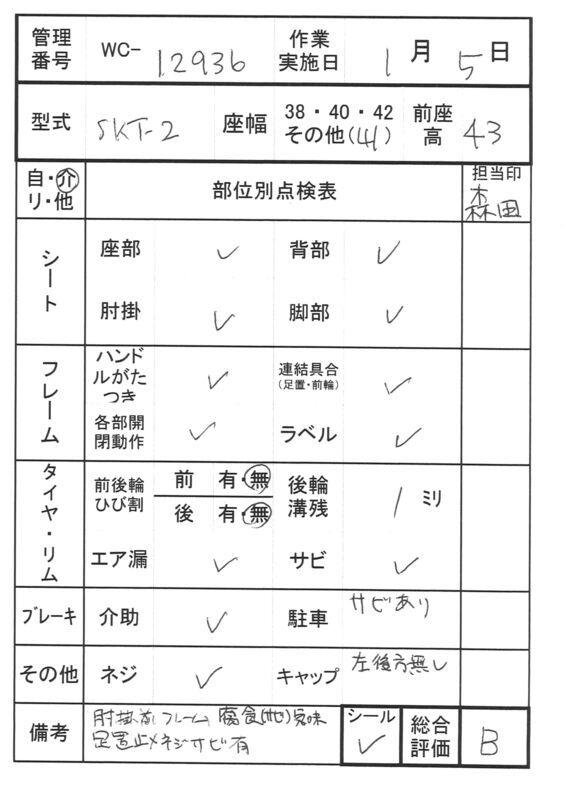 管理番号 WC- 12936 作業実施日 1月5日
型式 SKT-2 座幅 38・40・42 その他(41) 前座高 43
自・介 リ・他 部位別点検表 担当印
森田
シート 座部 ✓ 背部 ✓
肘掛 ✓ 脚部 ✓
フレーム ハンドルがたつき ✓ 連結具合(足置・前輪) ✓
各部開閉動作 ✓ ラベル ✓
タイヤ・リム 前後輪ひび割 前 有・無 後輪溝残 1 ミリ
後 有・無
エア漏 ✓ サビ ✓
ブレーキ 介助 ✓ 駐車 サビあり
その他 ネジ ✓ キャップ 左後方無し
備考 肘掛前フレーム腐食気味 シール ✓ 総合評価 B
足置止メネジサビ有